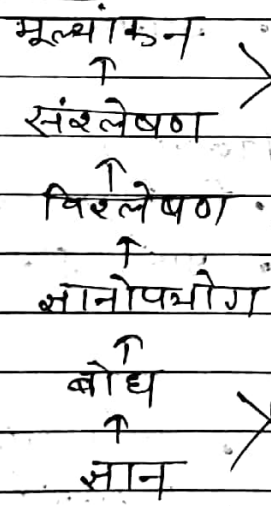 मूल्यांकन
↑
संश्लेषण
↑
विश्लेषण
↑
ज्ञानोपयोग
↑
बोध
↑
ज्ञान